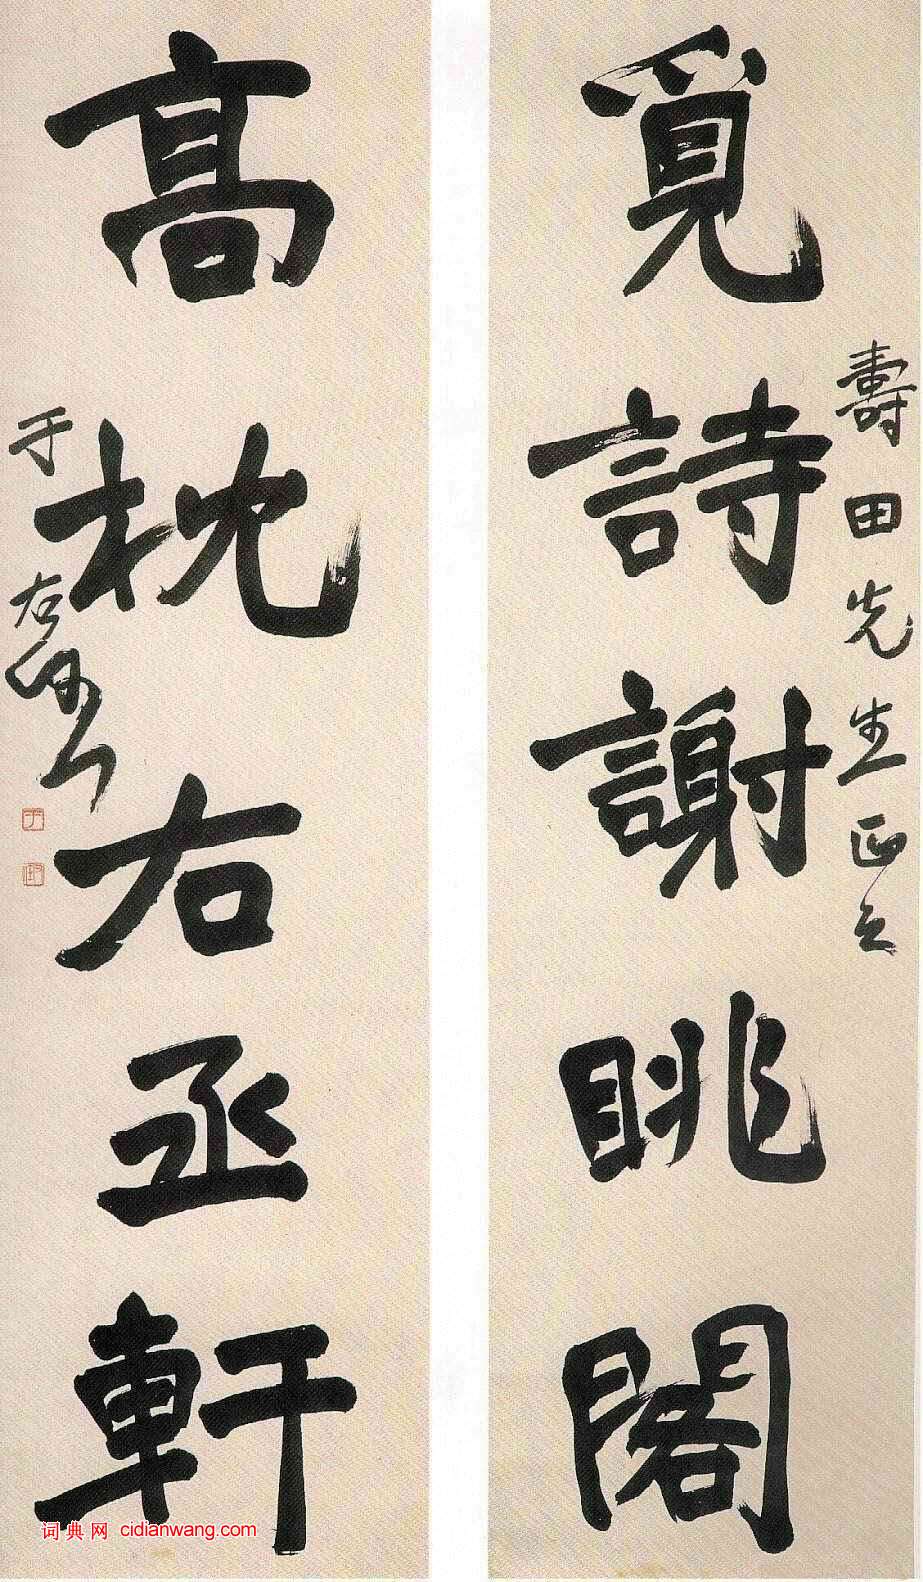 壽田先生正之
覓詩謝眺閣
高枕右丞軒
于右任
词典网 cidianwang.com